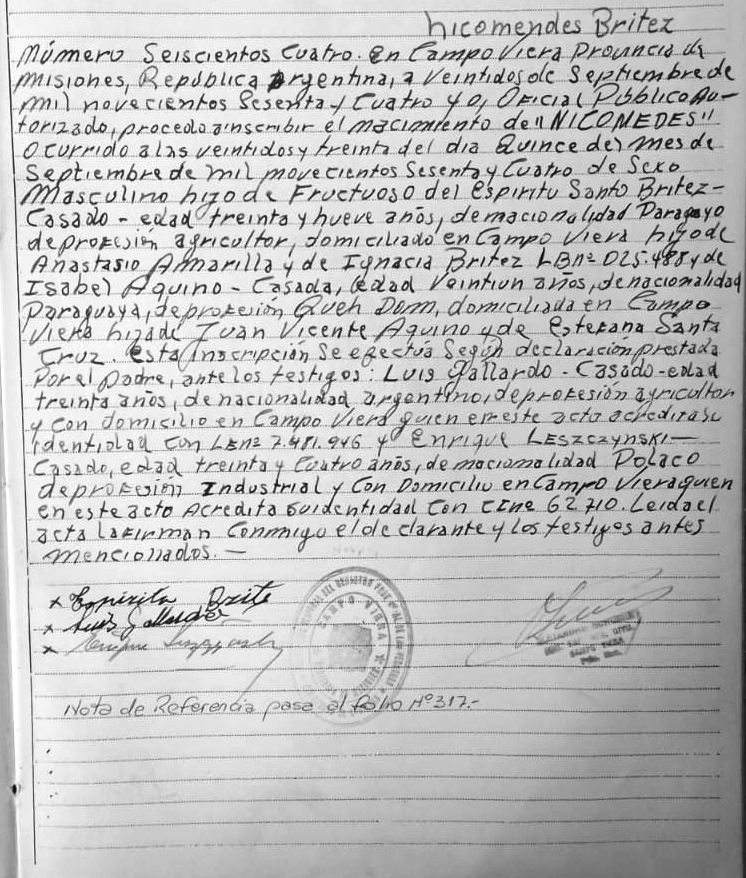 Nicomendes Britez
Número Seiscientos Cuatro. En Campo Viera Provincia de
Misiones, República Argentina, a veintidos de Septiembre de
mil novecientos Sesenta y Cuatro yo, Oficial Público Au-
torizado, procedo a inscribir el nacimiento de "NICOMEDES"
Ocurrido a las veintidos y treinta del dia Quince del mes de
Septiembre de mil novecientos Sesenta y Cuatro de Sexo
Masculino hijo de Fructuoso del Espiritu Santo Britez-
Casado - edad treinta y nueve años, de nacionalidad Paragayo
de profesión agricultor, domiciliado en Campo Viera hijo de
Anastasio Amarilla y de Ignacia Britez LE nº 025.488 y de
Isabel Aquino - Casada, edad Veintiun años, de nacionalidad
Paraguaya, de profesión Queh Dom, domiciliada en Campo
Viera hija de Juan Vicente Aquino y de Estefana Santa
Cruz. Esta inscripción Se efectúa Según declaración prestada
Por el padre, ante los testigos: Luis Gallardo - Casado - edad
treinta años, de nacionalidad argentino, de profesión agricultor
y con domicilio en Campo Viera quien en este acto acredita su
identidad con LE nº 7.481.946 y Enrique Leszczynski —
Casado, edad treinta y cuatro años, de nacionalidad Polaco
de profesión Industrial y con Domicilio en Campo Viera quien
en este acto Acredita su identidad con CI nº 62710. Leida el
acta la firman Conmigo el declarante y los testigos antes
mencionados. —
x Espiritu Brite
x Luis Gallardo
x Enrique
CAMPO VIERA
Nota de Referencia pasa al folio Nº 317.-